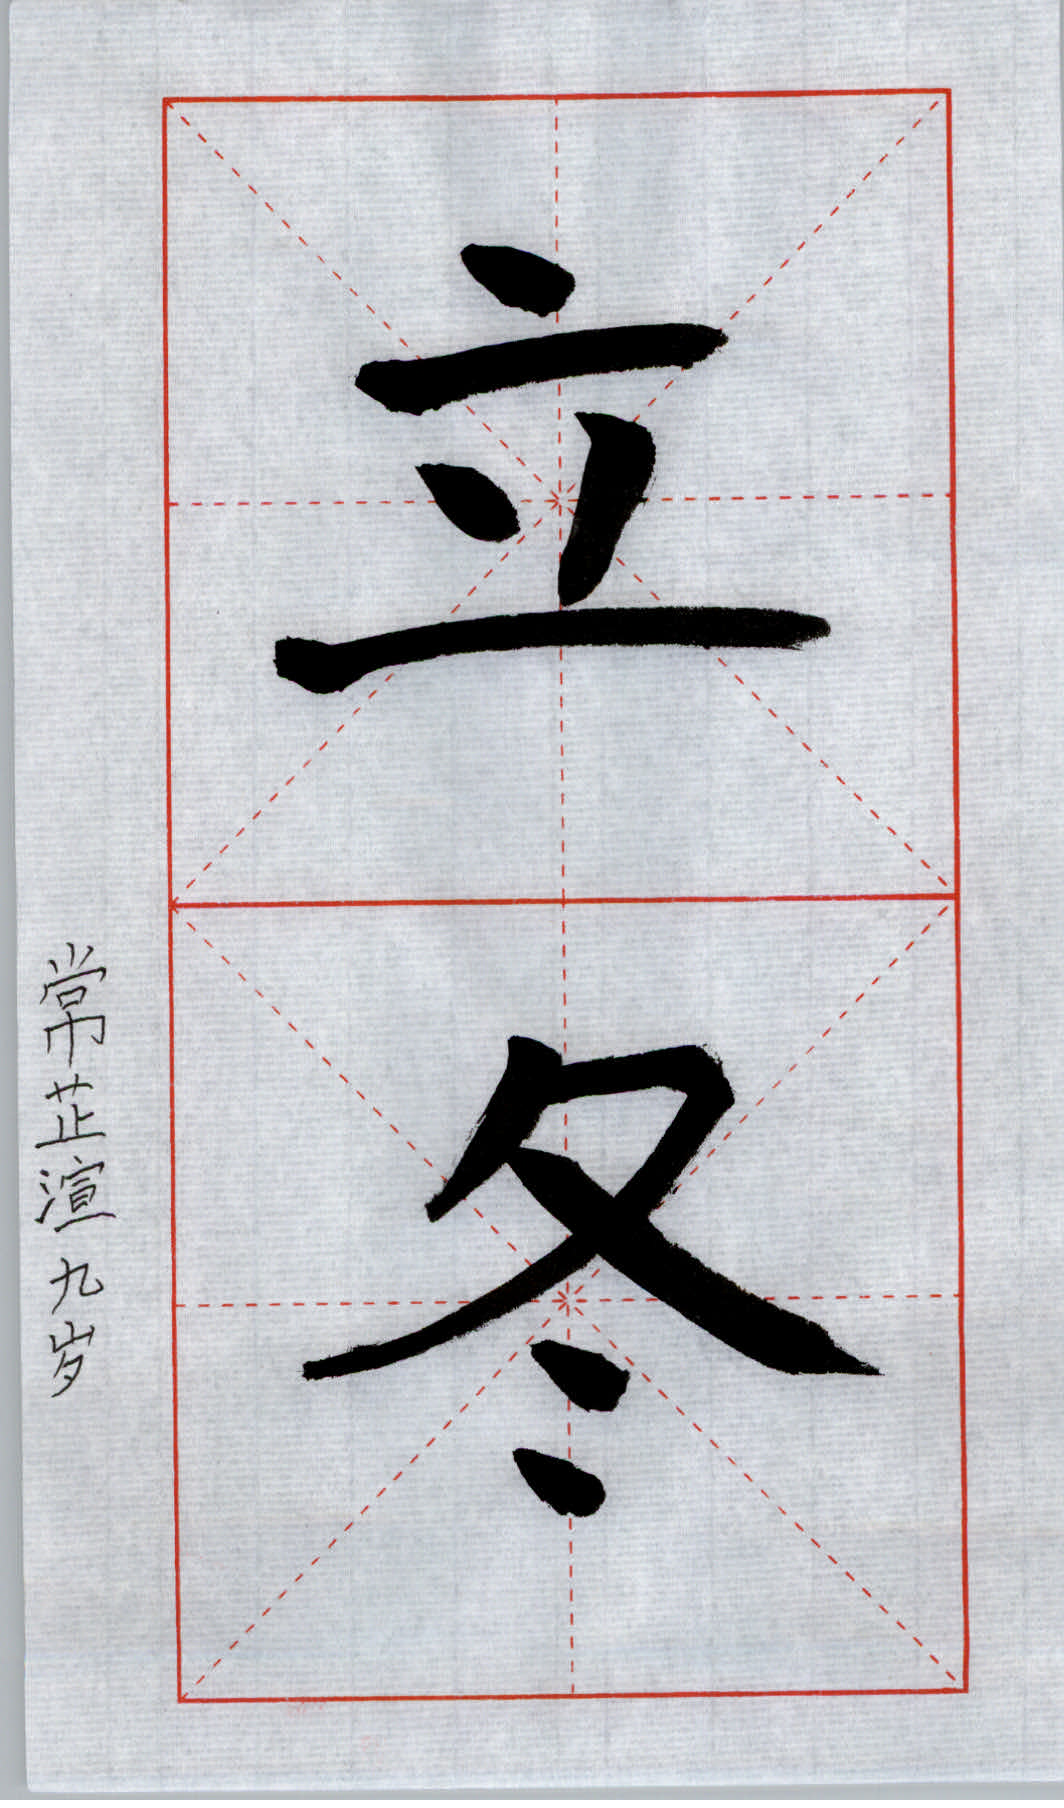 立冬
常芷渲九岁